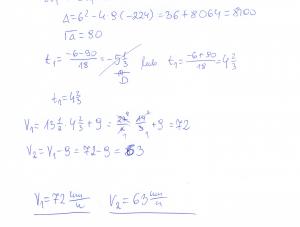 Δ=6²-4·9·(-224)=36+8064=8100
√Δ=90
t₁=\frac{-6-90}{18}=-5\frac{1}{3} ∉ D lub t₁=\frac{-6+90}{18}=4\frac{2}{3}
t₁=4\frac{2}{3}
V₁=13\frac{1}{2}·4\frac{2}{3}+9=\frac{27}{2}·\frac{14}{3}+9=72
V₂=V₁-9=72-9=63
V₁=72\frac{km}{h} V₂=63\frac{km}{h}